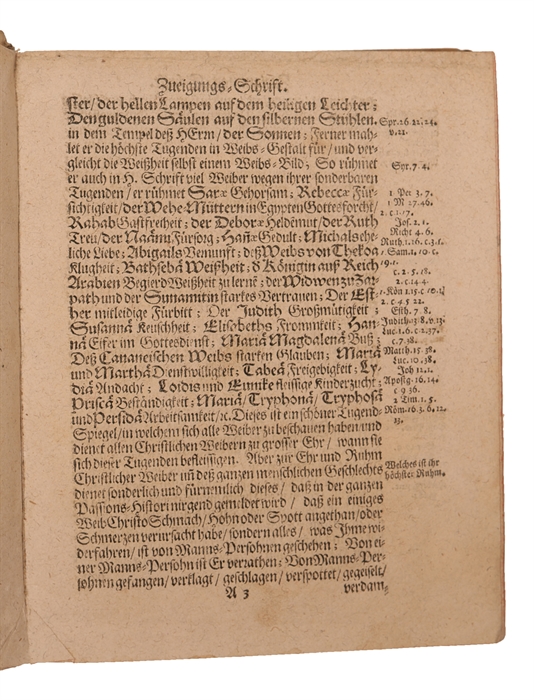 Zueigungs-Schrift.
ster/ der hellen Lampen auf dem heiligen Leichter;
Den guldenen Säulen auf den silbernen Stühlen.
in dem Tempel deß HErrn/ der Sonnen; Ferner mah-
let er die höchste Tugenden in Weibs-Gestalt für/ und ver-
gleicht die Weißheit selbst einem Weibs-Bild; So rühmet
er auch in H. Schrift viel Weiber wegen ihrer sonderbaren
Tugenden/ er rühmet Saræ Gehorsam; Rebeccæ Für-
sichtigkeit/ der Wehe-Müttern in Egypten Gottesforcht/
Rahab Gastfreiheit; der Deboræ Heldemut/ der Ruth
Treu/ der Naãmi Fürsorg; Hañæ Gedult; Michals ehe-
liche Liebe; Abigails Vernunft; deß Weibs von Thekoa
Klugheit; Bathseba Weißheit; d' Königin auß Reich
Arabien Begierd Weißheit zu lernẽ; der Widwen zu Zar-
path und der Sunamitin starkes Vertrauen; Der Est-
her mitleidige Fürbitt; Der Judith Großmütigkeit;
Susannā Keuschheit; Elisebeths Frommkeit; Han-
na Eifer im Gottesdienst; Mariā Magdalenā Buß;
Deß Cananeischen Weibs starken Glauben; Mariā
und Marthā Dienstwilligkeit; Tabeā Freigebigkeit; Ly-
diā Andacht; Loidis und Eunike fleissige Kinderzucht;
Priscā Beständigkeit; Mariā, Tryphonā, Tryphosā
und Persidā Arbeitsamkeit/ ꝛc. Dieses ist ein schöner Tugend-
Spiegel/ in welchem sich alle Weiber zu beschauen haben/ und
dienet allen Christlichen Weibern zu grosser Ehr/ wann sie
sich dieser Tugenden befleissigen. Aber zur Ehr und Ruhm
Christlicher Weiber uñ deß ganzen menschlichen Geschlechts
dienet sonderlich und fürnemlich dieses/ daß in der ganzen
Passions-Histori nirgend gemeldet wird/ daß ein einiges
Weib Christo Schmach/ Hohn oder Spott angethan/ oder
Schmerzen verursacht habe/ sondern alles/ was Ihme wi-
derfahren/ ist von Manns-Persohnen geschehen; Von ei-
ner Manns-Persohn ist Er verrathen; Von Manns-Per-
sohnen gefangen/ verklagt/ geschlagen/ verspottet/ gegeiselt/
A 3
verdam-
Spr. 26. 22. 24.
v. 22.
Syr. 7. 4.
1 Pet 3. 7.
1 M 27. 46.
2. c. 1. 17.
Jos. 2. 1.
Richt 4. 6.
Ruth. 1. 16. c. 3. 1.
1 Sam. 1. 10. c
19. 1.
c. 2. 5. 18.
2. c. 14. 4.
1. Kön 1. 15. c. 10. 1.
2. c 4. 5 22.
Esth. 7 8.
Judith. 13. 8. v. 13.
Luc. 1. 6. c. 2. 37.
c. 7. 38.
Matth. 15. 38.
Luc. 10. 38.
Joh 12. 1.
Apostg. 16. 14.
c 9 36.
2 Tim. 1. 5.
Röm. 16. 3. 6. 12.
13.
Welches ist ihr
höchster Ruhm.